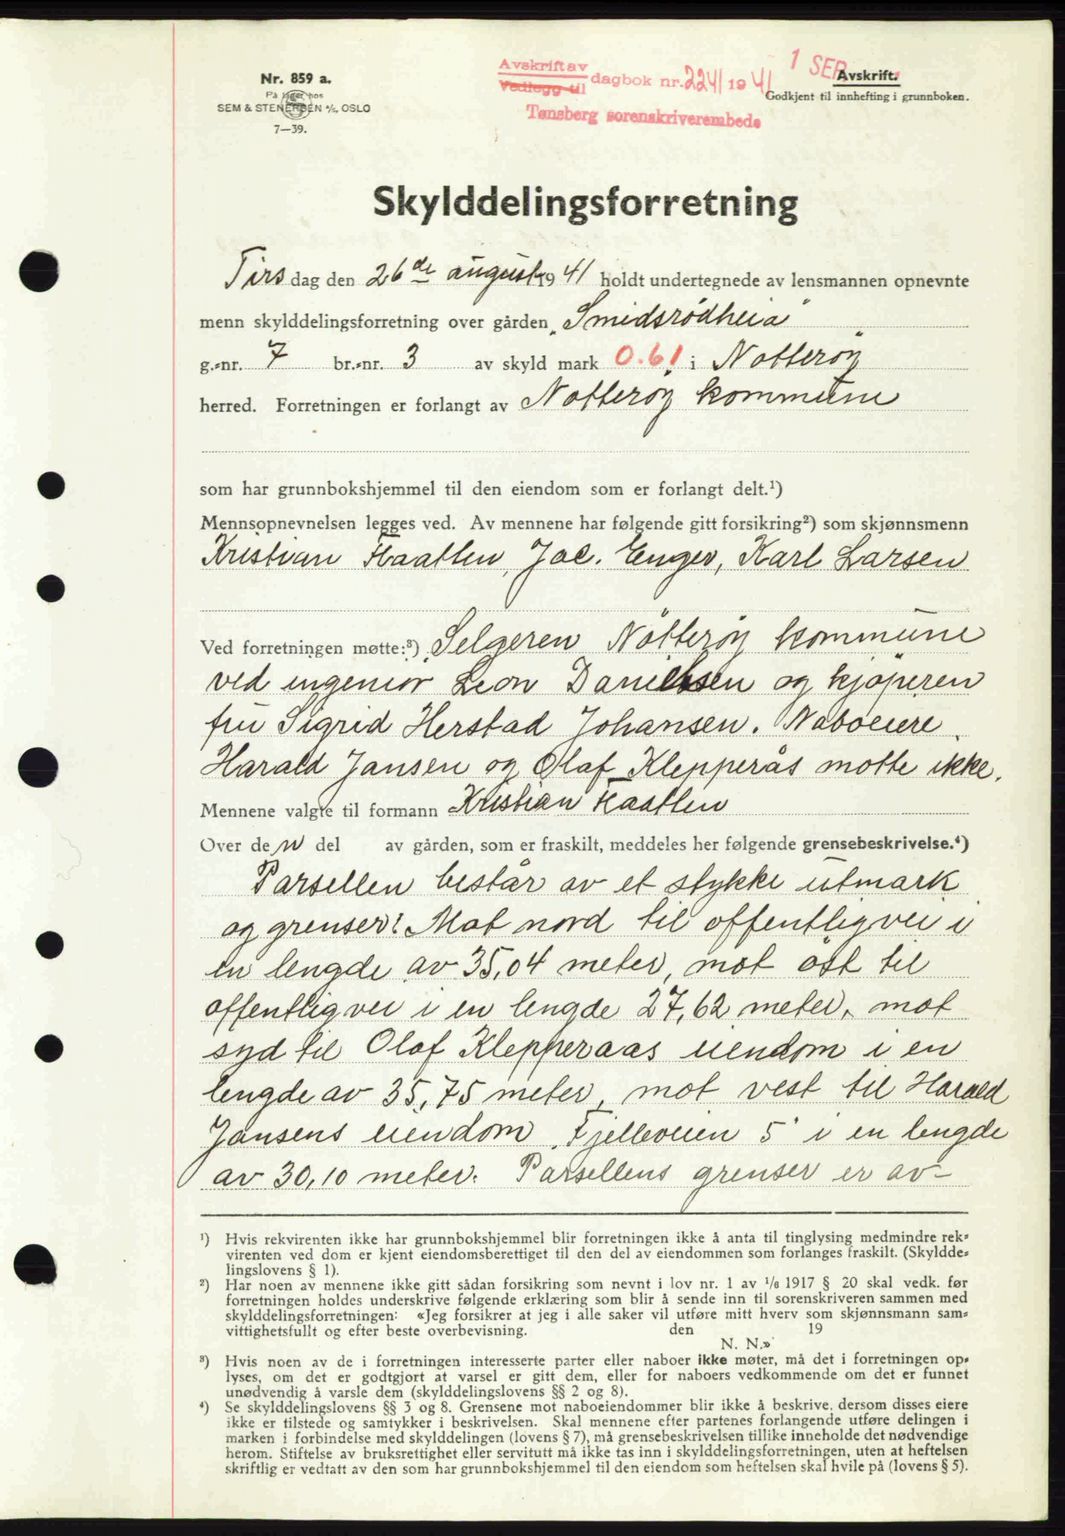 Nr. 859 a.
På lager hos
SEM & STENERSEN A/S, OSLO
7—39.
Avskrift av
Vedlegg til dagbok nr. 2241 1941
Tønsberg sorenskriverembede
1 SEP.
Avskrift.
Godkjent til innhefting i grunnboken.
Skylddelingsforretning
Tirsdag den 26de august 1941 holdt undertegnede av lensmannen opnevnte
menn skylddelingsforretning over gården „Smidsrödheia"
g.-nr. 7 br.-nr. 3 av skyld mark 0.61 i Nötteröy
herred. Forretningen er forlangt av Nötteröy kommune
som har grunnbokshjemmel til den eiendom som er forlangt delt.¹)
Mennsopnevnelsen legges ved. Av mennene har følgende gitt forsikring²) som skjønnsmenn
Kristian Haatten, Jac. Enger, Karl Larsen
Ved forretningen møtte:³) Selgeren Nötteröy kommune
ved ingeniör Leon Danielsen og kjöperen
fru Sigrid Herstad Johansen. Naboeiere
Harald Jansen og Olaf Klepperås motte ikke.
Mennene valgte til formann Kristian Haatten
Over den del av gården, som er fraskilt, meddeles her følgende grensebeskrivelse.⁴)
Parsellen består av et stykke utmark
og grenser: Mot nord til offentlig vei i
en lengde av 35,04 meter, mot öst til
offentlig vei i en lengde 27,62 meter, mot
syd til Olaf Klepperaas eiendom i en
lengde av 35,75 meter, mot vest til Harald
Jansens eiendom „Fjelleveien 5" i en lengde
av 30,10 meter. Parsellens grenser er av-
¹) Hvis rekvirenten ikke har grunnbokshjemmel blir forretningen ikke å anta til tinglysing medmindre rek-
virenten ved dom er kjent eiendomsberettiget til den del av eiendommen som forlanges fraskilt. (Skyldde-
lingslovens § 1).
²) Har noen av mennene ikke gitt sådan forsikring som nevnt i lov nr. 1 av 1/6 1917 § 20 skal vedk. før
forretningen holdes underskrive følgende erklæring som blir å sende inn til sorenskriveren sammen med
skylddelingsforretningen: «Jeg forsikrer at jeg i alle saker vil utføre mitt hverv som skjønnsmann sam-
vittighetsfullt og efter beste overbevisning. den 19
N. N.»
³) Hvis noen av de i forretningen interesserte parter eller naboer ikke møter, må det i forretningen op-
lyses, om det er godtgjort at varsel er gitt dem, eller for naboers vedkommende om det er funnet
unødvendig å varsle dem (skylddelingslovens §§ 2 og 8).
⁴) Se skylddelingslovens §§ 3 og 8. Grensene mot naboeiendommer blir ikke å beskrive, dersom disses eiere
ikke er tilstede og samtykker i beskrivelsen. Skal mennene efter partenes forlangende utføre delingen i
marken i forbindelse med skylddelingen (lovens § 7), må grensebeskrivelsen tillike inneholde det nødvendige
herom. Stiftelse av bruksrettighet eller servitutt må ikke tas inn i skylddelingsforretningen, uten at heftelsen
skriftlig er vedtatt av den som har grunnbokshjemmel til den eiendom som heftelsen skal hvile på (lovens § 5).